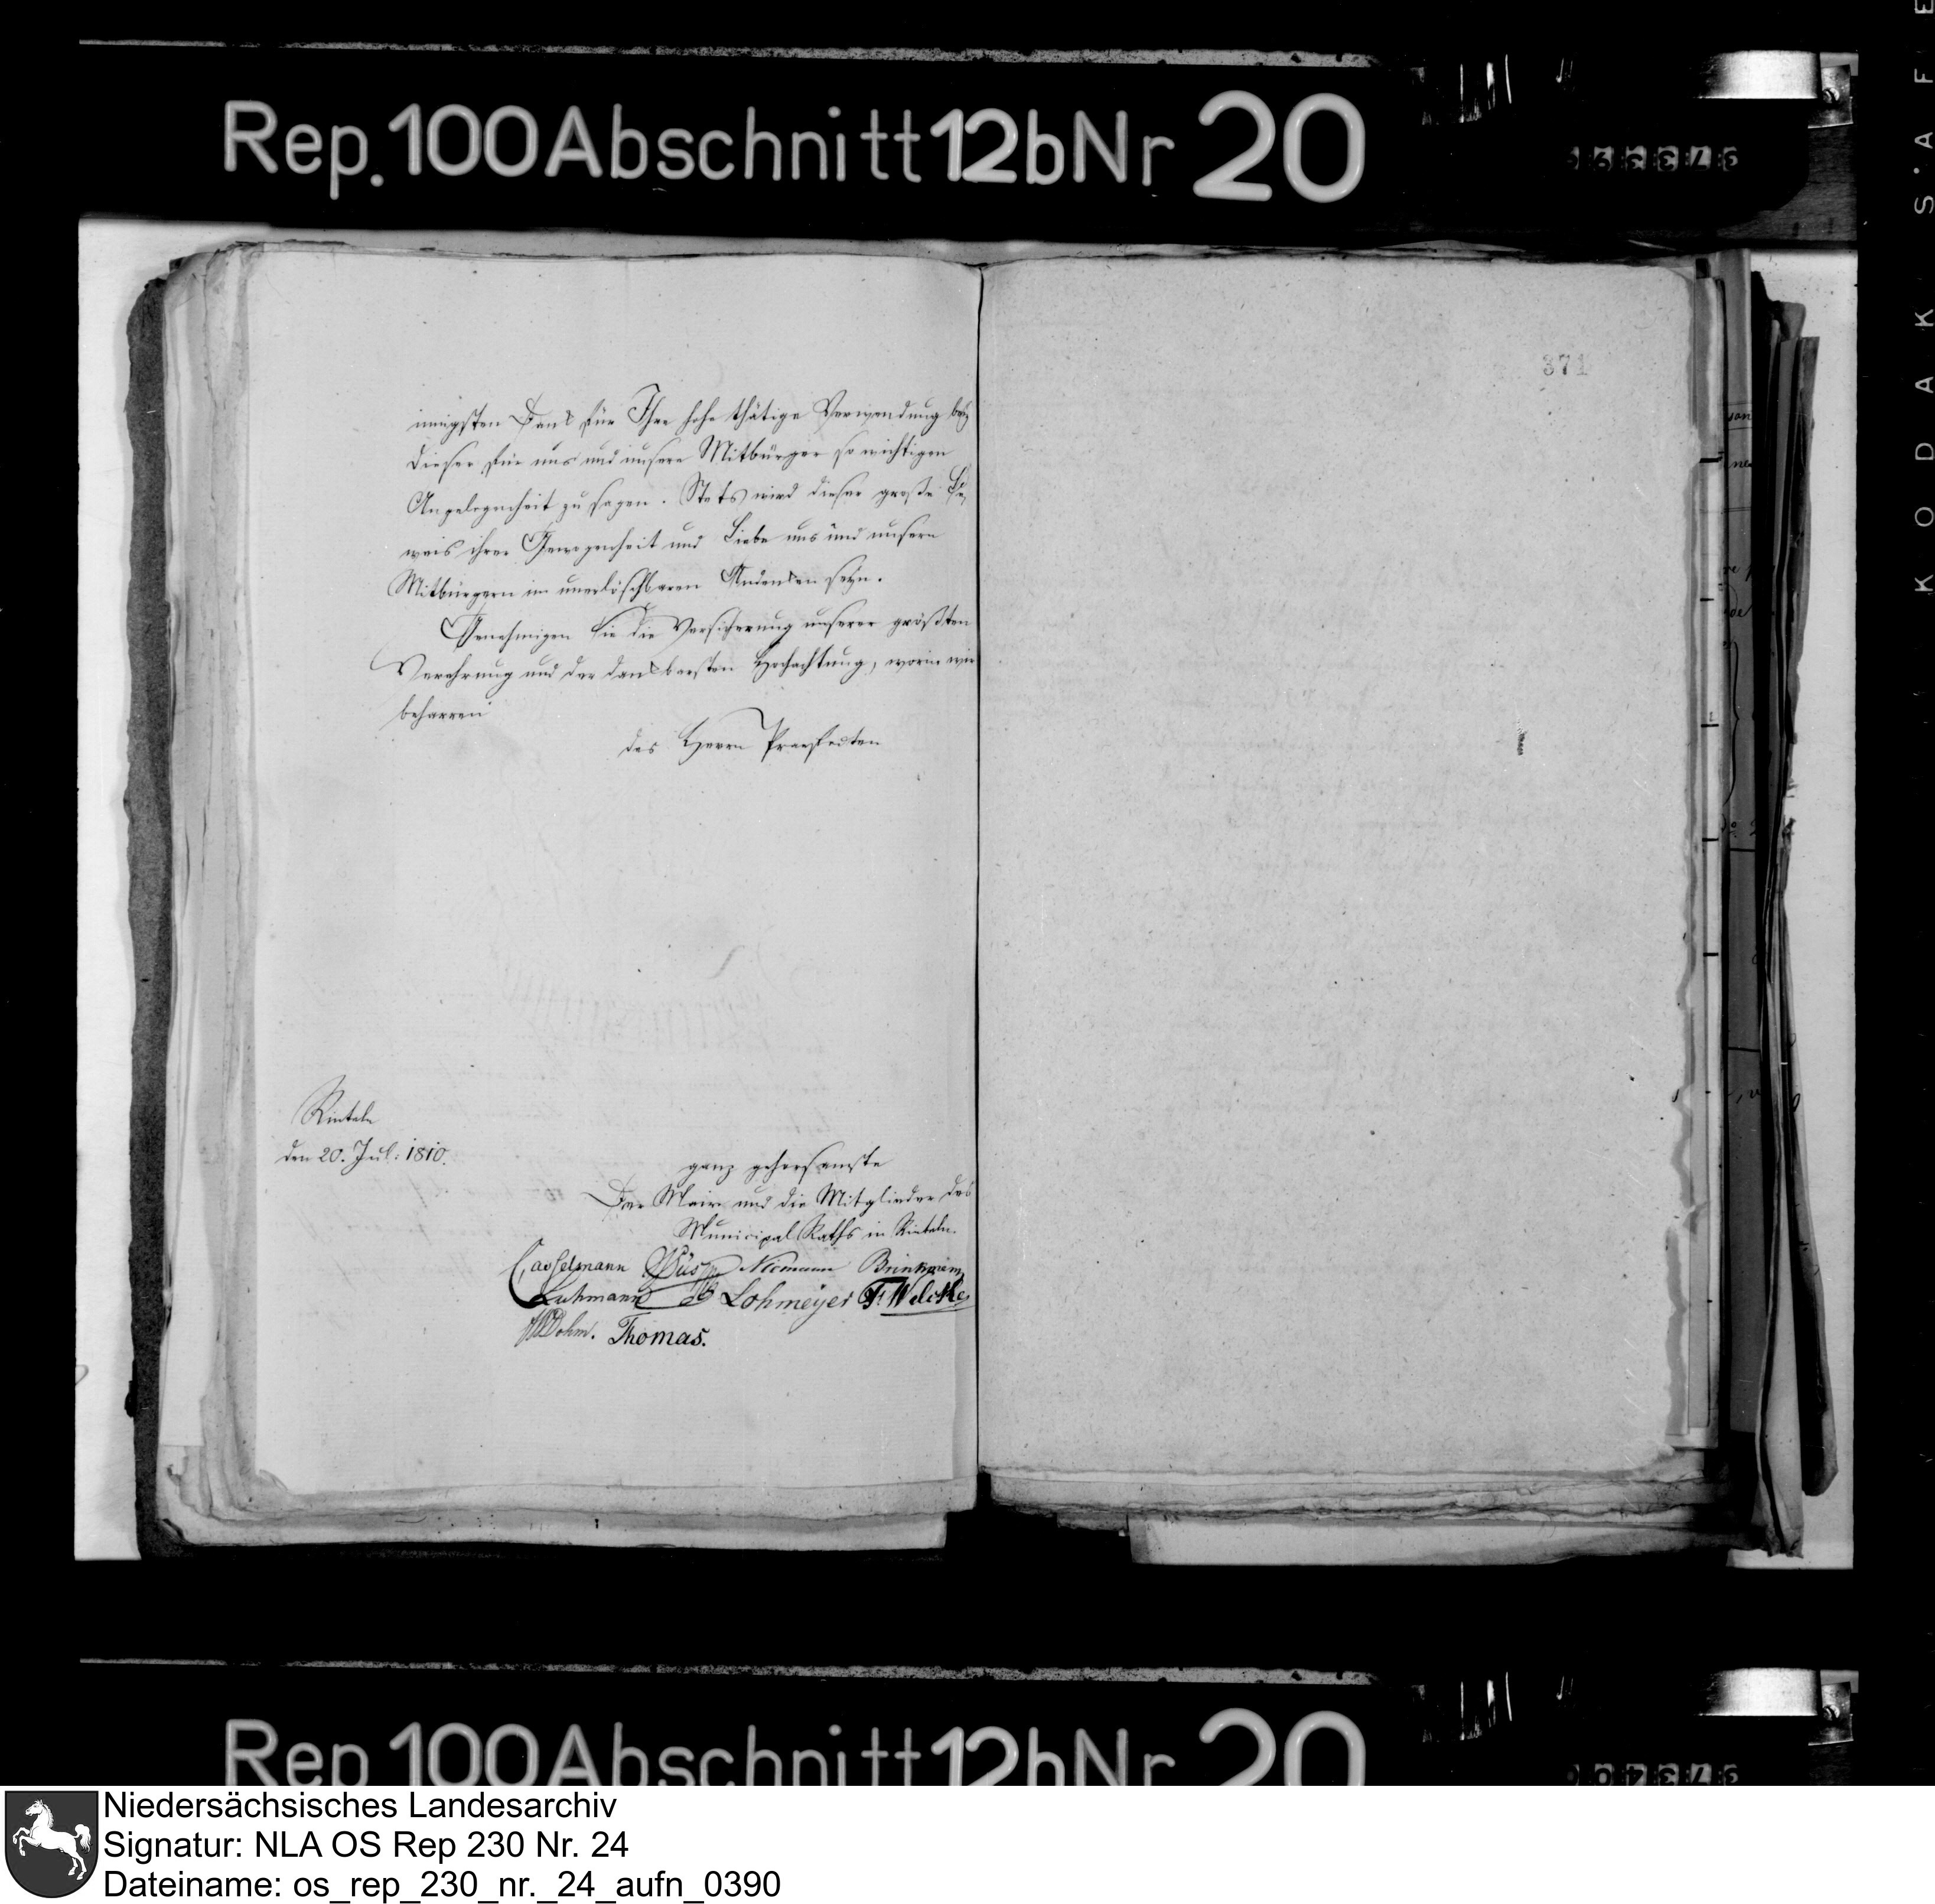 Rep. 100 Abschnitt 12b Nr 20
371
innigsten Dank für Ihre hohe thätige Verwendung bey
dieser für uns und unsere Mitbürger so wichtigen
Angelegenheit zu sagen. Stets wird dieser große Be,
weis ihrer Gewogenheit und Liebe uns und unsern
Mitbürgern im unerlöschbaren Andenken seyn.
Genehmigen Sie die Versicherung unserer größten
Verehrung und der dankbarsten Hochachtung, worin wir
beharren
des Herrn Praefecten
Rinteln
den 20. Jul: 1810.
ganz gehorsamste
Der Maire und die Mitglieder des
Municipal Raths in Rinteln.
Casselmann Niemann
Luhmann Lohmeyer F. Welcke
Dohm. Thomas.
KODAK S.AFE
Rep 100 Abschnitt 12b Nr 20
Niedersächsisches Landesarchiv
Signatur: NLA OS Rep 230 Nr. 24
Dateiname: os_rep_230_nr._24_aufn_0390